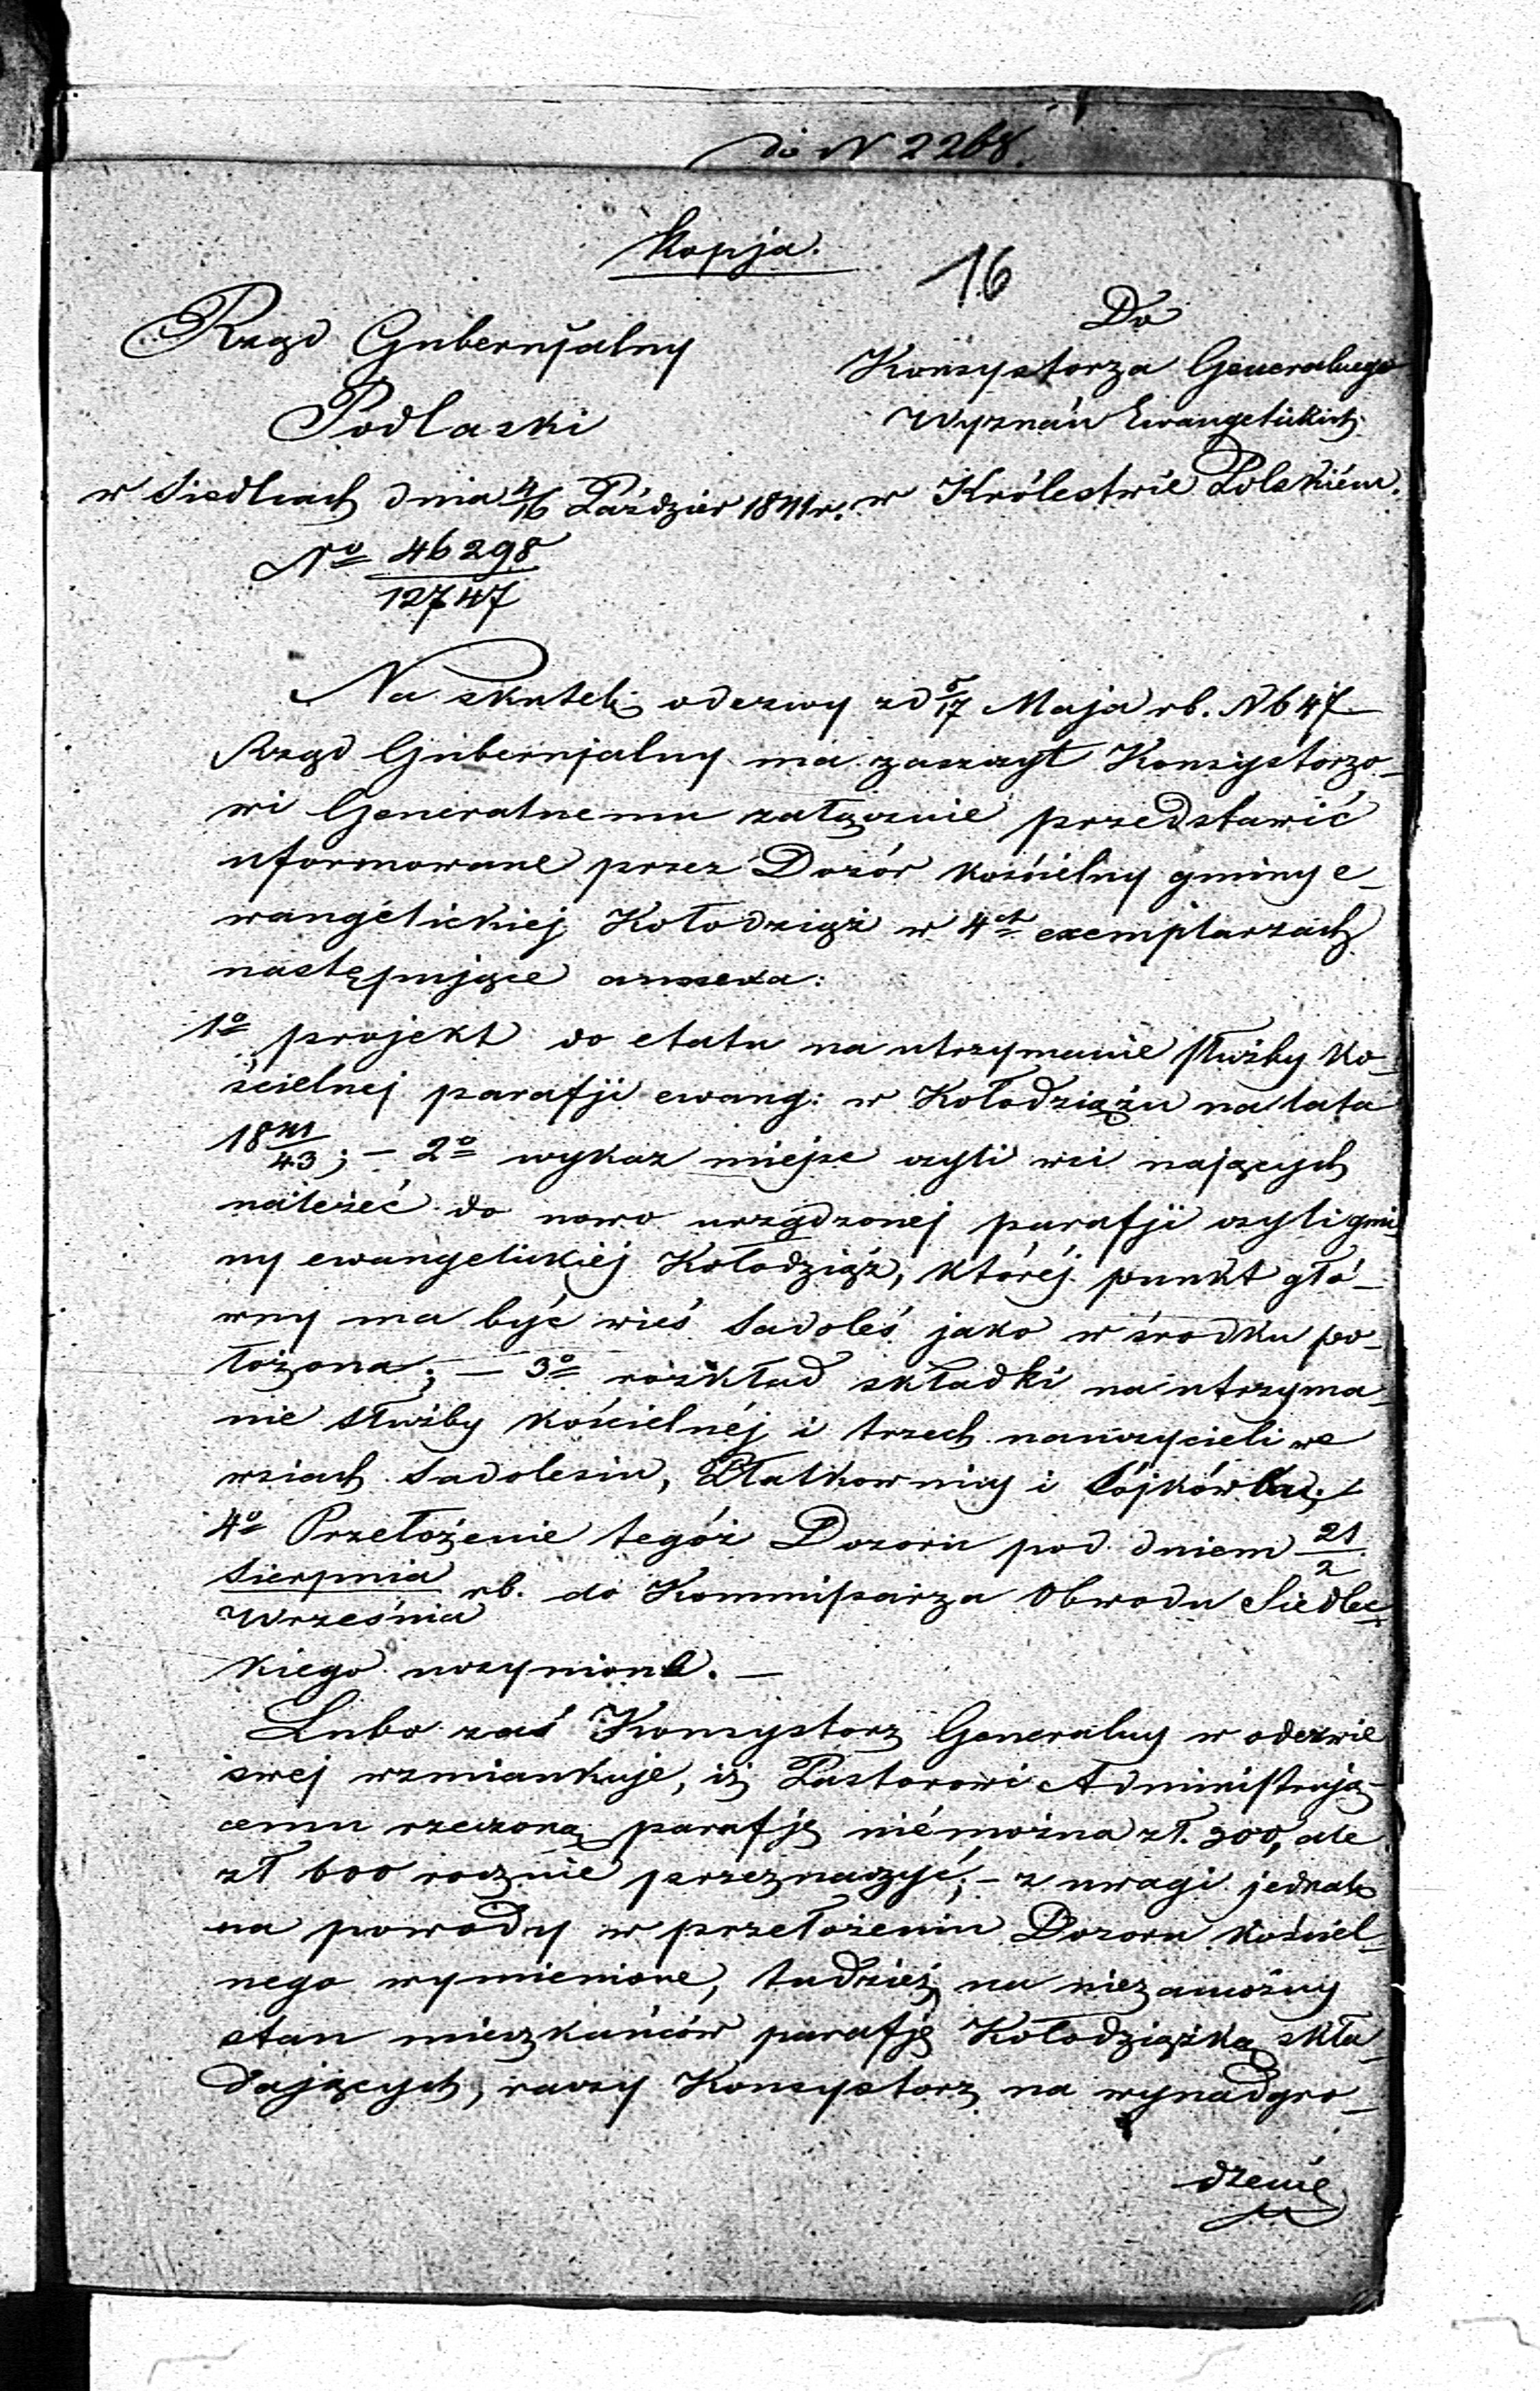 do N 2268.
Kopja.
16
Rząd Gubernjalny
Podlaski
w Siedlcach dnia 4/16 Paździer 1841 r.
No 46298/12747
Do
Konsystorza Generalnego
Wyznań Ewangelickich
w Królestwie Polskiém.
Na skutek odezwy z d 5/17 Maja rb. N 647
Rząd Gubernjalny ma zaszczyt Konsystorzo-
wi Generalnemu załącznie przedstawić
uformowane przez Dozór kościelny gminy e-
wangelickiej Kołodziąż w 4ch exemplarzach
następujące annexa:
1o projekt do etatu na utrzymanie służby ko-
ścielnej parafji ewang: w Kołodziążu na lata
1841/43; - 2o wykaz miejsc czyli wsi mających
należeć do nowo urządzonej parafji czyli gmi-
ny ewangelickiéj Kołodziąż, któréj punkt głó-
wny ma być wieś Sadoleś jako w środku po-
łożona; - 3o rozkład składki na utrzyma-
nie służby kościelnéj i trzech nauczycieli we
wsiach Sadolesiu, Płatkownicy i Sójkówku; -
4o Przełożenie tegóż Dozoru pod dniem 21/2
Sierpnia/Września rb. do Kommissarza Obwodu Siedlec-
kiego uczynione. -
Lubo zaś Konsystorz Generalny w odezwie
swej wzmiankuje, iż Pastorowi Administrują-
cemu rzeczoną parafję niemożna zł. 300, ale
zł 600 rocznie przeznaczyć; - z uwagi jednak
na powody w przełożeniu Dozoru kościel-
nego wymienione, tudzież na niezamożny
stan mieszkańców parafję Kołodziążką skła-
dających, raczy Konsystorz na wynadgro-
dzenie